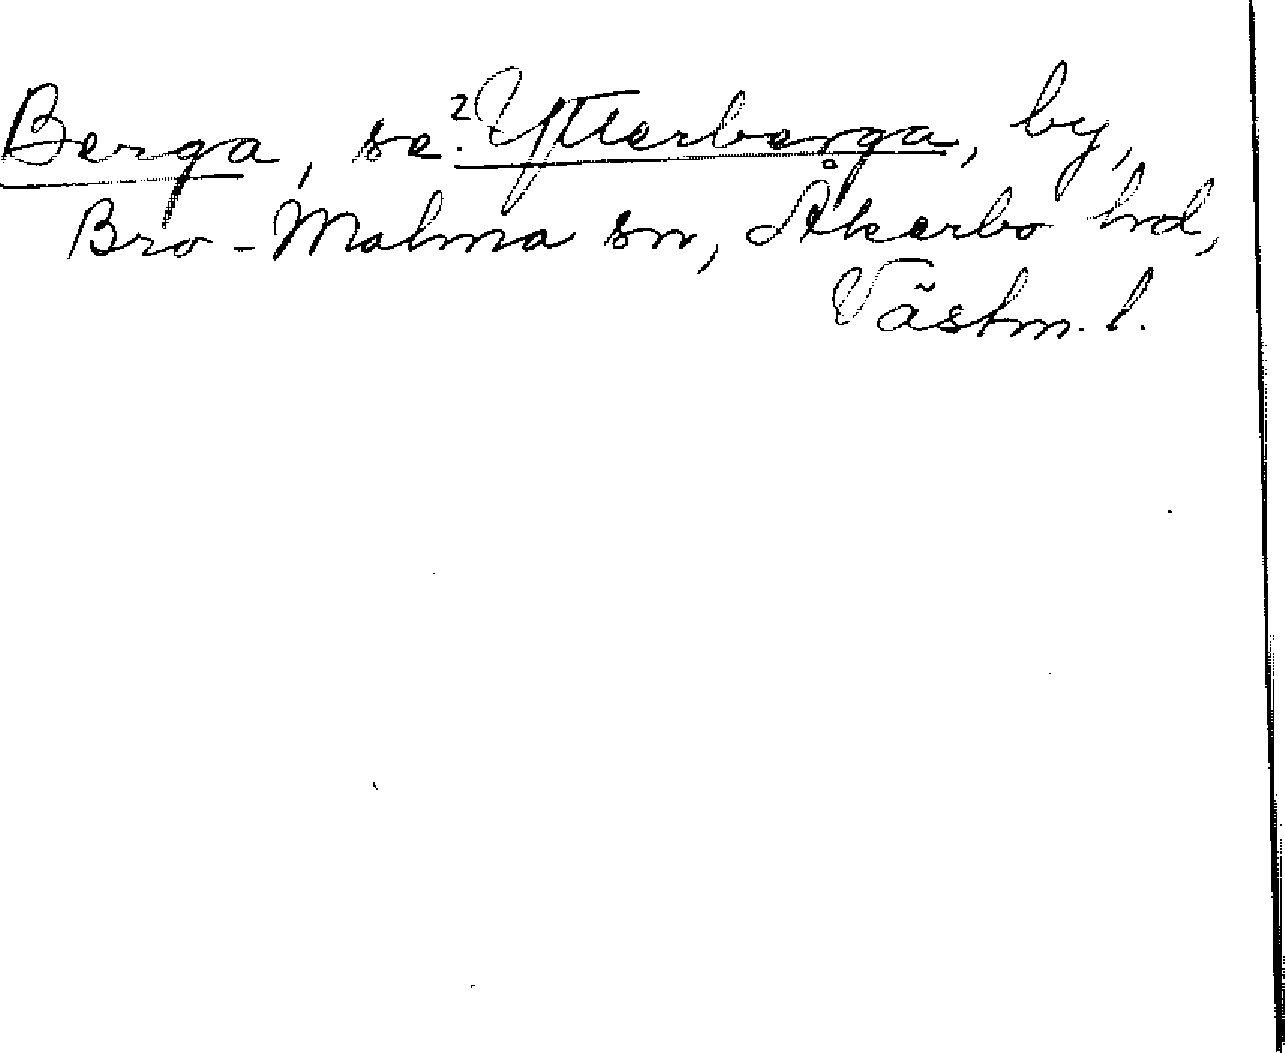 Berga, se ².Ytterberga, by,
Bro-Malma sn, Åkerbo hd,
Västm. l.